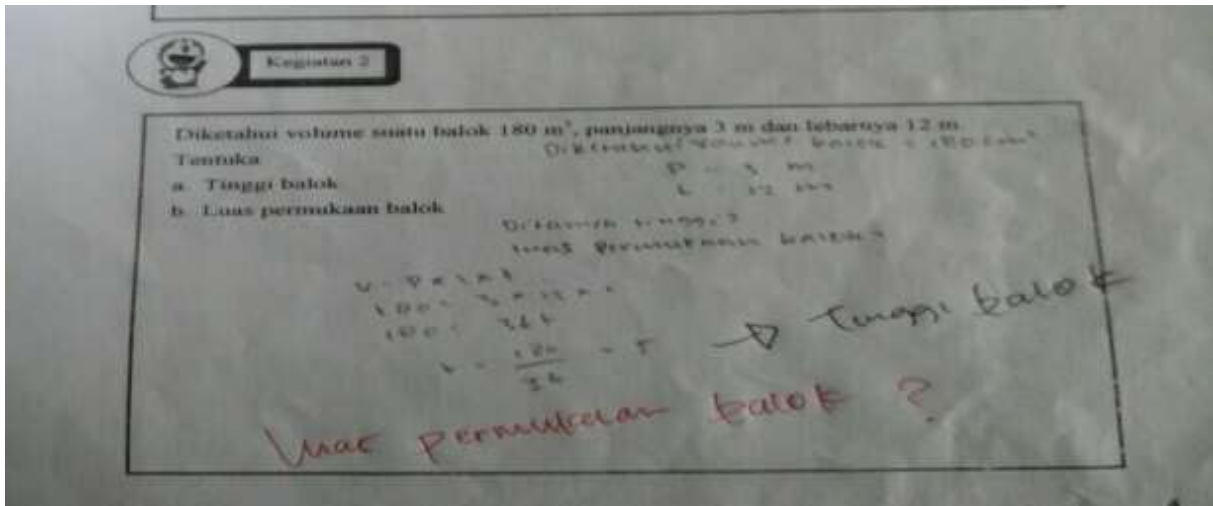 Kegiatan 2
Diketahui volume suatu balok 180 m³, panjangnya 3 m dan lebarnya 12 m.
Tentuka
a. Tinggi balok
b. Luas permukaan balok
Diketahui Volume balok = 180 cm³
P = 3 m
L = 12 m
Ditanya tinggi?
luas Permukaan balok?
V = P x l x t
180 = 3 x 12 x t
180 = 36 t
t = 180/36 = 5 → Tinggi balok
luas permukaan balok ?